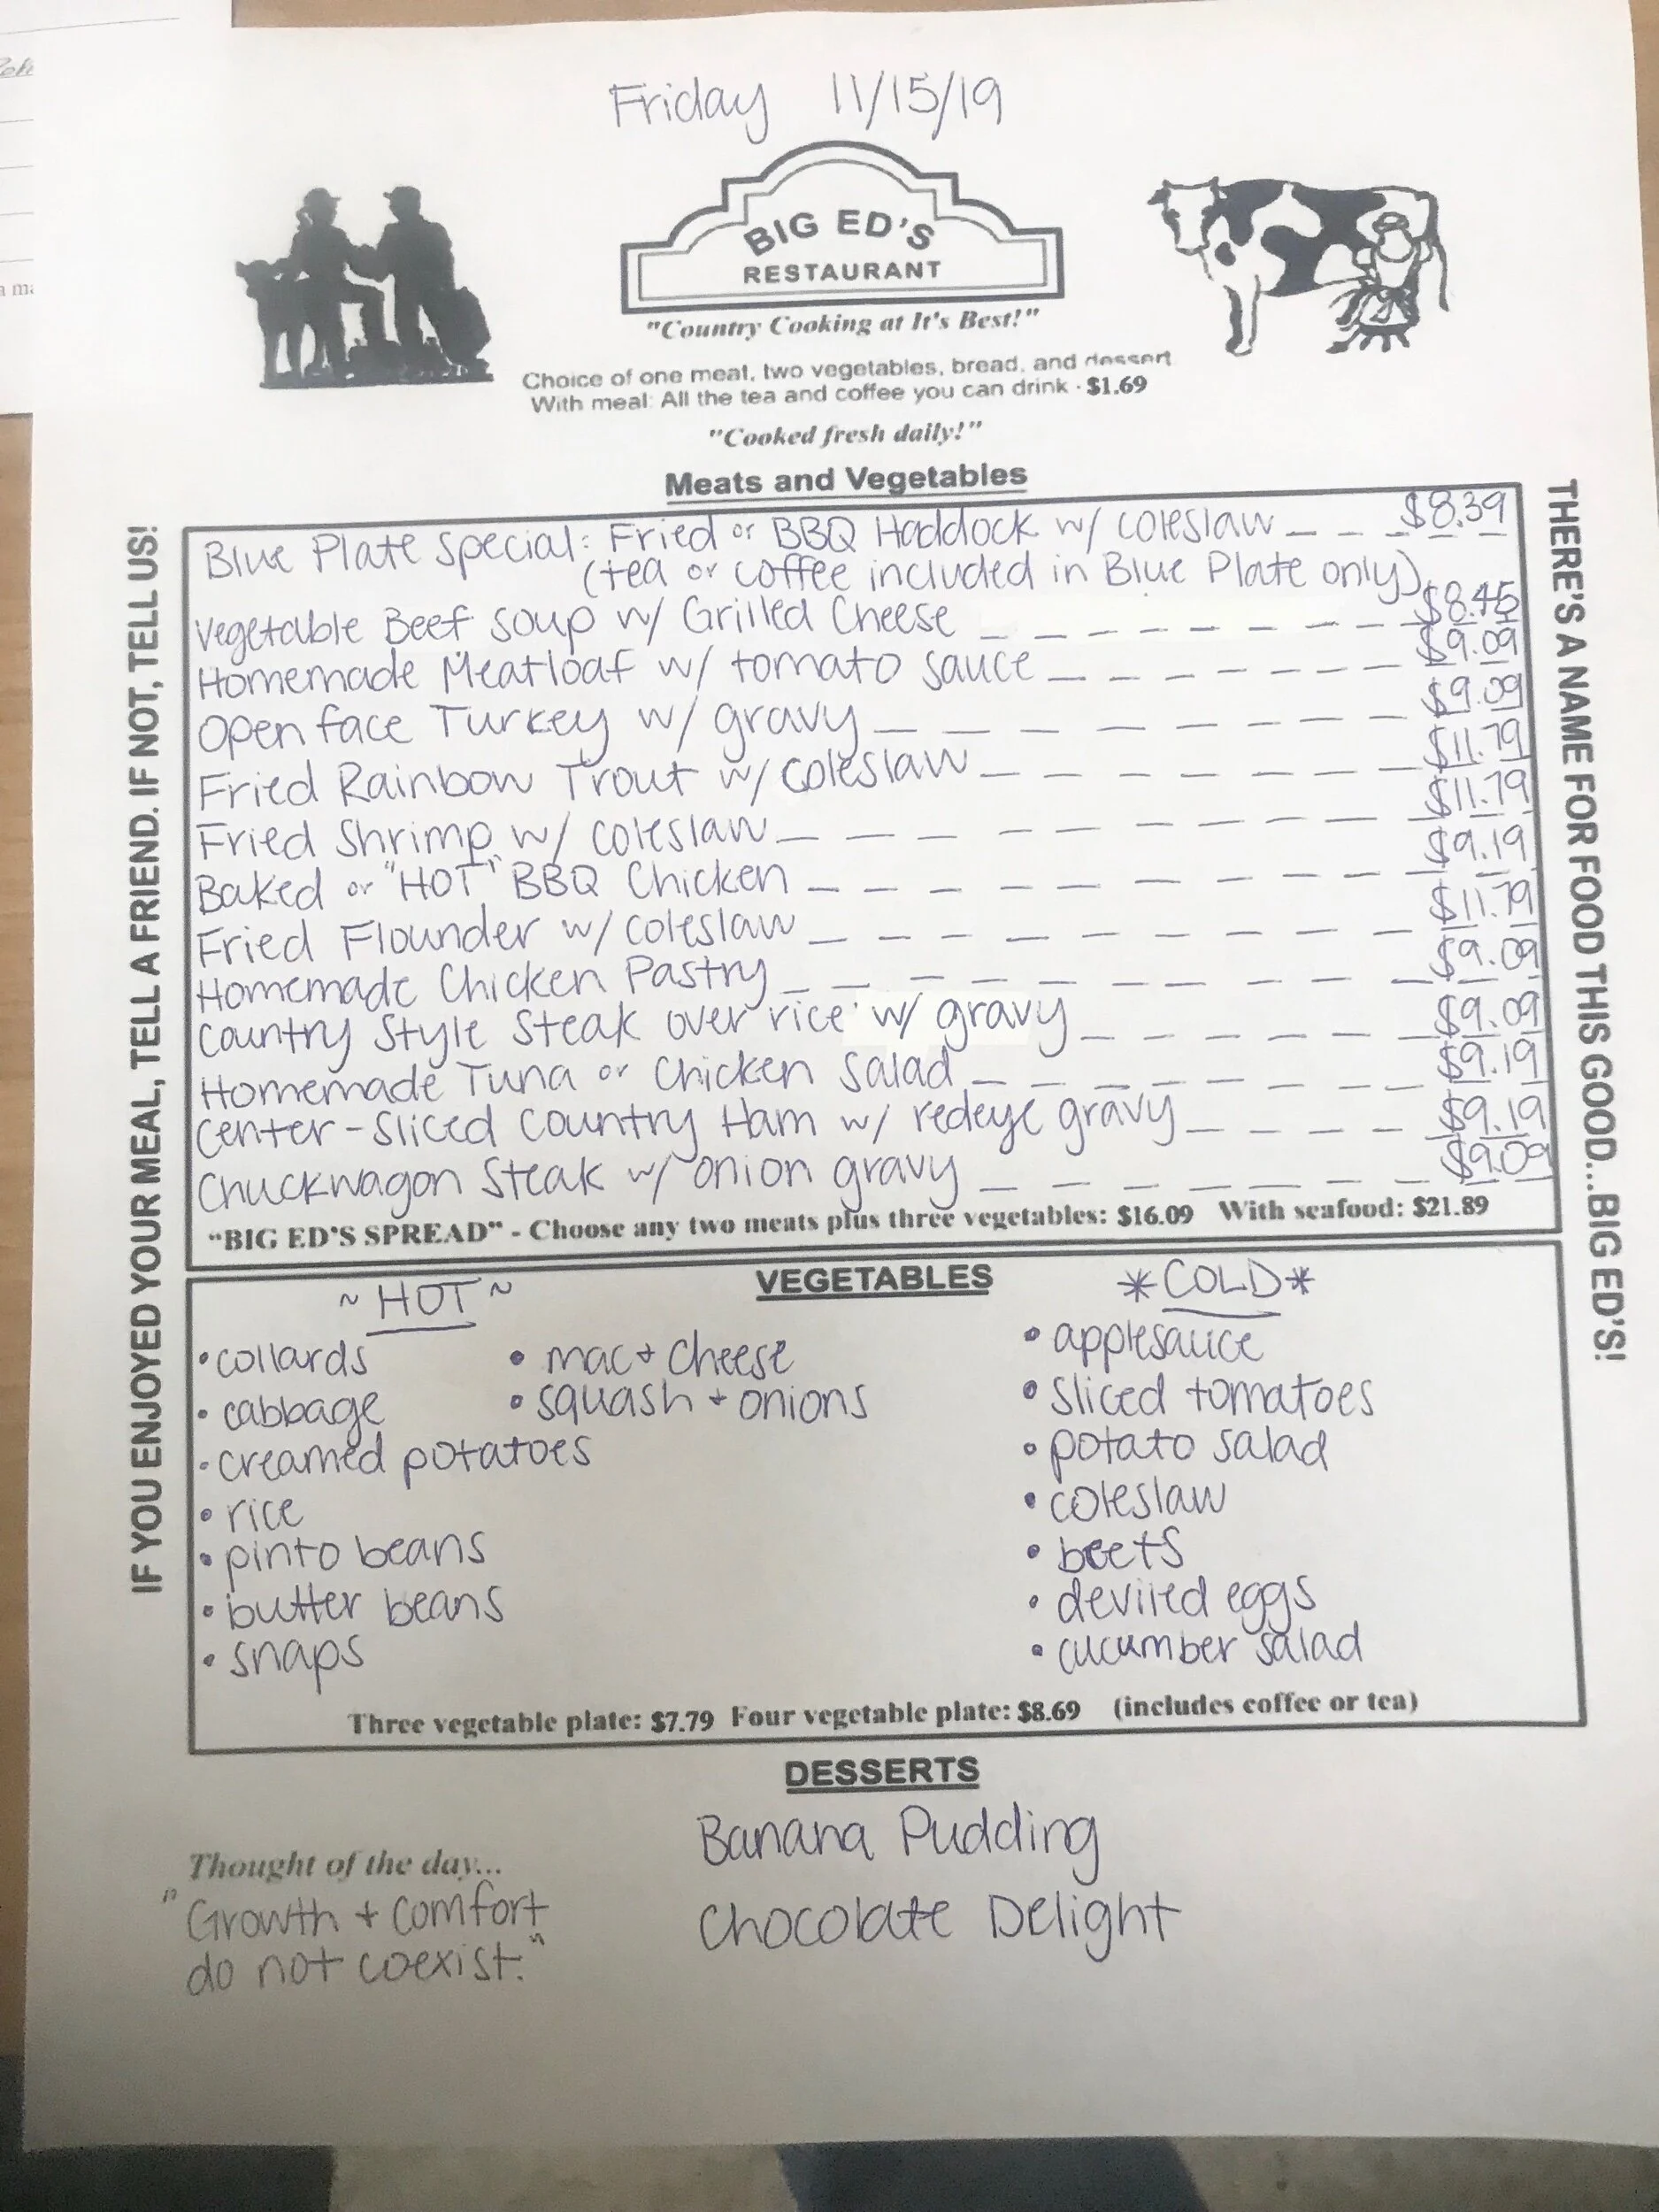 Friday 11/15/19
BIG ED'S
RESTAURANT
"Country Cooking at It's Best!"
Choice of one meat, two vegetables, bread, and dessert
With meal: All the tea and coffee you can drink - $1.69
"Cooked fresh daily!"
Meats and Vegetables
Blue Plate Special: Fried or BBQ Haddock w/ coleslaw $8.39
(tea or coffee included in Blue Plate only)
Vegetable Beef Soup w/ Grilled Cheese $8.45
Homemade Meatloaf w/ tomato sauce $9.09
Open face Turkey w/ gravy $9.09
Fried Rainbow Trout w/ coleslaw $11.79
Fried Shrimp w/ coleslaw $11.79
Baked or "HOT" BBQ Chicken $9.19
Fried Flounder w/ coleslaw $11.79
Homemade Chicken Pastry $9.09
Country Style Steak over rice w/ gravy $9.09
Homemade Tuna or Chicken Salad $9.19
Center-Sliced Country Ham w/ redeye gravy $9.19
Chuckwagon Steak w/ onion gravy $9.09
"BIG ED'S SPREAD" - Choose any two meats plus three vegetables: $16.09 With seafood: $21.89
VEGETABLES
~ HOT ~
• collards
• cabbage
• creamed potatoes
• rice
• pinto beans
• butter beans
• snaps
• mac + cheese
• squash + onions
*COLD*
• applesauce
• sliced tomatoes
• potato salad
• coleslaw
• beets
• deviled eggs
• cucumber salad
Three vegetable plate: $7.79 Four vegetable plate: $8.69 (includes coffee or tea)
DESSERTS
Banana Pudding
Chocolate Delight
Thought of the day...
"Growth + comfort
do not coexist."
IF YOU ENJOYED YOUR MEAL, TELL A FRIEND. IF NOT, TELL US!
THERE'S A NAME FOR FOOD THIS GOOD...BIG ED'S!